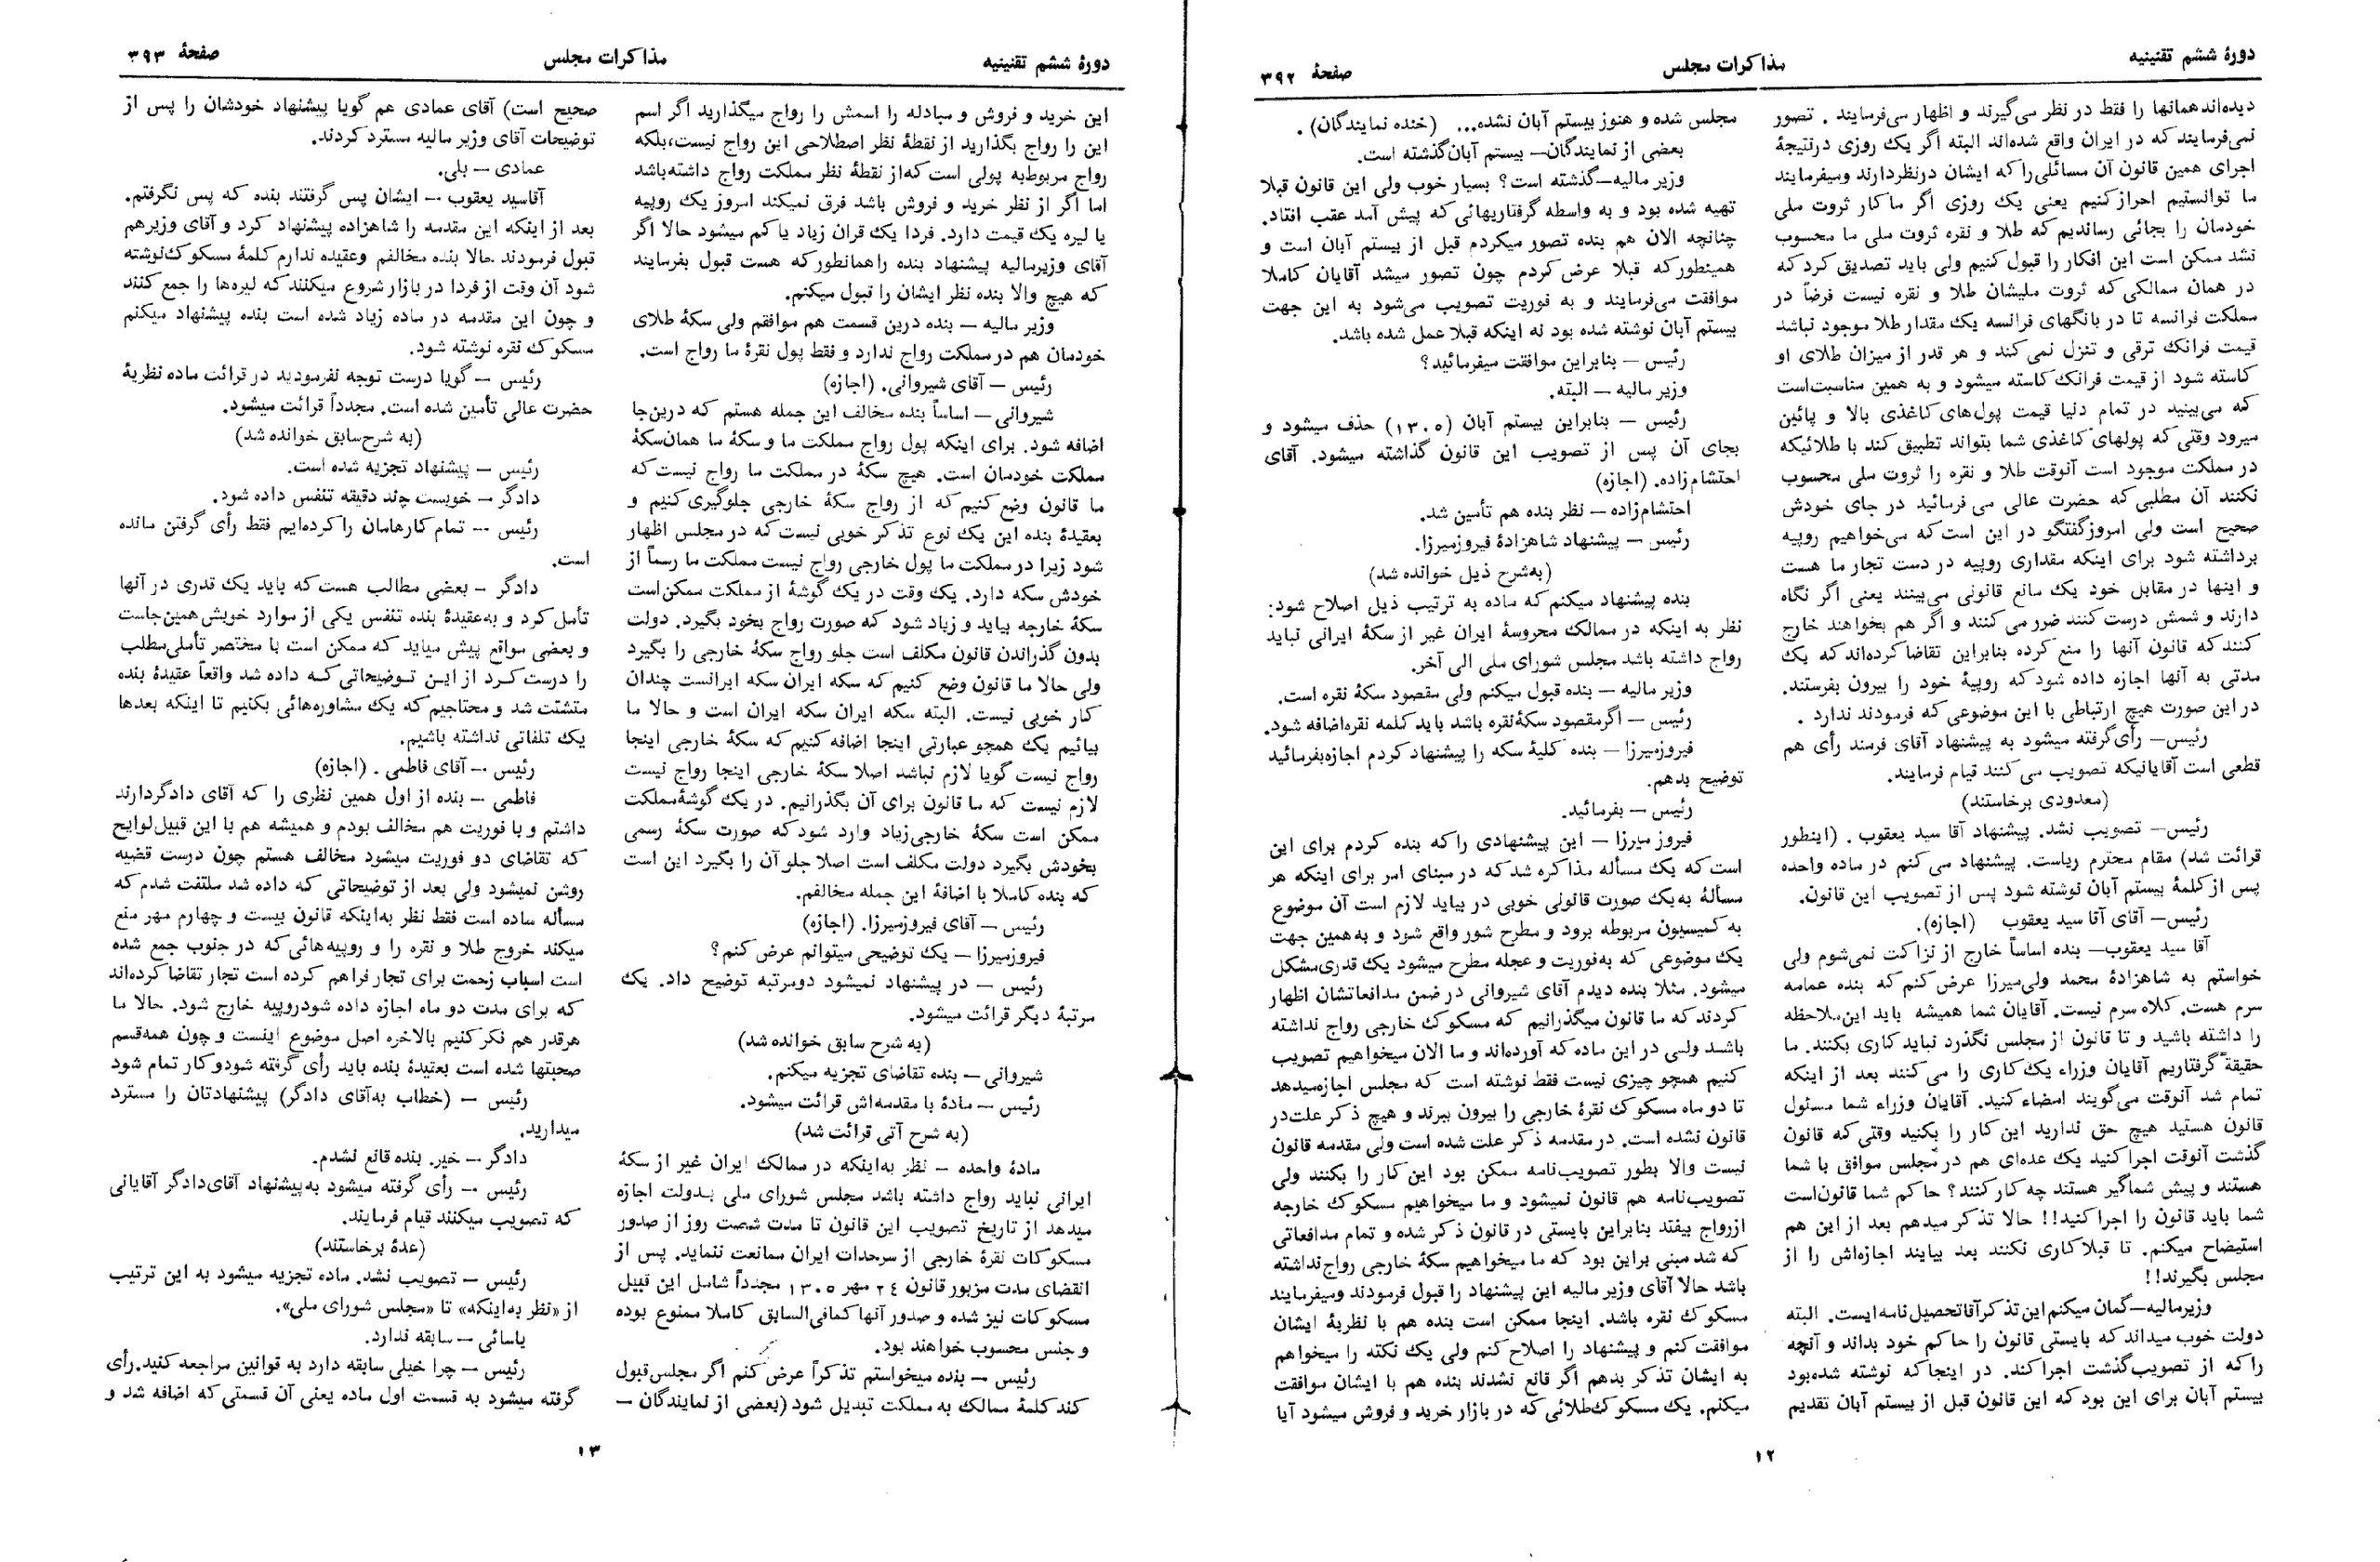 دورهٔ ششم تقنینیه
مذاکرات مجلس
صفحهٔ ۳۹۲
دیده‌اند همانها را فقط در نظر می‌گیرند و اظهار می‌فرمایند . تصور
نمی‌فرمایند که در ایران واقع شده‌اند البته اگر یک روزی درنتیجهٔ
اجرای همین قانون آن مسائلی را که ایشان در نظر دارند ومیفرمایند
ما توانستیم احراز کنیم یعنی یک روزی اگر ما کار ثروت ملی
خودمان را بجائی رساندیم که طلا و نقره ثروت ملی ما محسوب
نشد ممکن است این افکار را قبول کنیم ولی باید تصدیق کرد که
در همان ممالکی که ثروت ملیشان طلا و نقره نیست فرضاً در
مملکت فرانسه تا در بانگهای فرانسه یک مقدار طلا موجود نباشد
قیمت فرانک ترقی و تنزل نمی کند و هر قدر از میزان طلای او
کاسته شود از قیمت فرانک کاسته میشود و به همین مناسبت است
که می‌بینید در تمام دنیا قیمت پول‌های کاغذی بالا و پائین
میرود وقتی که پولهای کاغذی شما بتواند تطبیق کند با طلائیکه
در مملکت موجود است آنوقت طلا و نقره را ثروت ملی محسوب
نکنند آن مطلبی که حضرت عالی می فرمائید در جای خودش
صحیح است ولی امروز گفتگو در این است که می‌خواهیم روپیه
برداشته شود برای اینکه مقداری روپیه در دست تجار ما هست
و اینها در مقابل خود یک مانع قانونی می‌بینند یعنی اگر نگاه
دارند و شمش درست کنند ضرر می کنند و اگر هم بخواهند خارج
کنند که قانون آنها را منع کرده بنابراین تقاضا کرده‌اند که یک
مدتی به آنها اجازه داده شود که روپیهٔ خود را بیرون بفرستند.
در این صورت هیچ ارتباطی با این موضوعی که فرمودند ندارد .
رئیس— رأی گرفته میشود به پیشنهاد آقای فرمند رأی هم
قطعی است آقایانیکه تصویب می کنند قیام فرمایند.
(معدودی برخاستند)
رئیس— تصویب نشد. پیشنهاد آقا سید یعقوب . (اینطور
قرائت شد) مقام محترم ریاست. پیشنهاد می کنم در ماده واحده
پس از کلمهٔ بیستم آبان نوشته شود پس از تصویب این قانون.
رئیس— آقای آقا سید یعقوب (اجازه).
آقا سید یعقوب— بنده اساساً خارج از نزاکت نمی‌شوم ولی
خواستم به شاهزادهٔ محمد ولی‌میرزا عرض کنم که بنده عمامه
سرم هست. کلاه سرم نیست. آقایان شما همیشه باید این ملاحظه
را داشته باشید و تا قانون از مجلس نگذرد نباید کاری بکنند. ما
حقیقةً گرفتاریم آقایان وزراء یک کاری را می کنند بعد از اینکه
تمام شد آنوقت می‌گویند امضاء کنید. آقایان وزراء شما مسئول
قانون هستید هیچ حق ندارید این کار را بکنید وقتی که قانون
گذشت آنوقت اجرا کنید یک عده‌ای هم در مجلس موافق با شما
هستند و پیش شماگیر هستند چه کار کنند؟ حاکم شما قانون است
شما باید قانون را اجرا کنید!! حالا تذکر میدهم بعد از این هم
استیضاح میکنم. تا قبلا کاری نکنند بعد بیایند اجازه‌اش را از
مجلس بگیرند!!
وزیر مالیه— گمان میکنم این تذکر آقا تحصیل نامه ایست. البته
دولت خوب میداند که بایستی قانون را حاکم خود بداند و آنچه
را که از تصویب گذشت اجرا کند. در اینجا که نوشته شده بود
بیستم آبان برای این بود که این قانون قبل از بیستم آبان تقدیم
مجلس شده و هنوز بیستم آبان نشده... (خنده نمایندگان) .
بعضی از نمایندگان— بیستم آبان گذشته است.
وزیر مالیه— گذشته است؟ بسیار خوب ولی این قانون قبلا
تهیه شده بود و به واسطه گرفتاریهائی که پیش آمد عقب افتاد.
چنانچه الان هم بنده تصور میکردم قبل از بیستم آبان است و
همینطور که قبلا عرض کردم چون تصور میشد آقایان کاملا
موافقت می‌فرمایند و به فوریت تصویب می‌شود به این جهت
بیستم آبان نوشته شده بود نه اینکه قبلا عمل شده باشد.
رئیس — بنابراین موافقت میفرمائید؟
وزیر مالیه — البته.
رئیس — بنابراین بیستم آبان (۱۳۰۵) حذف میشود و
بجای آن پس از تصویب این قانون گذاشته میشود. آقای
احتشام‌زاده. (اجازه)
احتشام‌زاده — نظر بنده هم تأمین شد.
رئیس — پیشنهاد شاهزادهٔ فیروزمیرزا.
(به‌شرح ذیل خوانده شد)
بنده پیشنهاد میکنم که ماده به ترتیب ذیل اصلاح شود:
نظر به اینکه در ممالک محروسهٔ ایران غیر از سکهٔ ایرانی نباید
رواج داشته باشد مجلس شورای ملی الی آخر.
وزیر مالیه — بنده قبول میکنم ولی مقصود سکهٔ نقره است.
رئیس — اگر مقصود سکهٔ نقره باشد باید کلمه نقره اضافه شود.
فیروزمیرزا — بنده کلیهٔ سکه را پیشنهاد کردم اجازه بفرمائید
توضیح بدهم.
رئیس — بفرمائید.
فیروز میرزا — این پیشنهادی را که بنده کردم برای این
است که یک مسأله مذاکره شد که در مبنای امر برای اینکه هر
مسألهٔ به یک صورت قانونی خوبی در بیاید لازم است آن موضوع
به کمیسیون مربوطه برود و مطرح شور واقع شود و به همین جهت
یک موضوعی که به‌فوریت و عجله مطرح میشود یک قدری مشکل
میشود. مثلا بنده دیدم آقای شیروانی در ضمن مدافعاتشان اظهار
کردند که ما قانون میگذرانیم که مسکوک خارجی رواج نداشته
باشد ولی در این ماده که آورده‌اند و ما الان میخواهیم تصویب
کنیم همچو چیزی نیست فقط نوشته است که مجلس اجازه میدهد
تا دو ماه مسکوک نقرهٔ خارجی را بیرون ببرند و هیچ ذکر علت در
قانون نشده است. در مقدمه ذکر علت شده است ولی مقدمه قانون
نیست والا بطور تصویب‌نامه ممکن بود این کار را بکنند ولی
تصویب‌نامه هم قانون نمیشود و ما میخواهیم مسکوک خارجه
از رواج بیفتد بنابراین بایستی در قانون ذکر شده و تمام مدافعاتی
که شد مبنی براین بود که ما میخواهیم سکهٔ خارجی رواج نداشته
باشد حالا آقای وزیر مالیه این پیشنهاد را قبول فرمودند ومیفرمایند
مسکوک نقره باشد. اینجا ممکن است بنده هم با نظریهٔ ایشان
موافقت کنم و پیشنهاد را اصلاح کنم ولی یک نکته را میخواهم
به ایشان تذکر بدهم اگر قانع نشدند بنده هم با ایشان موافقت
میکنم. یک مسکوک طلائی که در بازار خرید و فروش میشود آیا
۱۲
دورهٔ ششم تقنینیه
مذاکرات مجلس
صفحهٔ ۳۹۳
این خرید و فروش و مبادله را اسمش را رواج میگذارید اگر اسم
این را رواج بگذارید از نقطهٔ نظر اصطلاحی این رواج نیست، بلکه
رواج مربوط به پولی است که از نقطهٔ نظر مملکت رواج داشته باشد
اما اگر از نظر خرید و فروش باشد فرق نمیکند امروز یک روپیه
یا لیره یک قیمت دارد. فردا یک قران زیاد یا کم میشود حالا اگر
آقای وزیر مالیه پیشنهاد بنده را همانطور که هست قبول بفرمایند
که هیچ والا بنده نظر ایشان را قبول میکنم.
وزیر مالیه — بنده درین قسمت هم موافقم ولی سکهٔ طلای
خودمان هم در مملکت رواج ندارد و فقط پول نقرهٔ ما رواج است.
رئیس — آقای شیروانی. (اجازه)
شیروانی — اساساً بنده مخالف این جمله هستم که درین‌جا
اضافه شود. برای اینکه پول رواج مملکت ما و سکهٔ ما همان سکهٔ
مملکت خودمان است. هیچ سکهٔ در مملکت ما رواج نیست که
ما قانون وضع کنیم که از رواج سکهٔ خارجی جلوگیری کنیم و
بعقیدهٔ بنده این یک نوع تذکر خوبی نیست که در مجلس اظهار
شود زیرا در مملکت ما پول خارجی رواج نیست مملکت ما رسماً از
خودش سکه دارد. یک وقت در یک گوشهٔ از مملکت ممکن است
سکهٔ خارجه بیاید و زیاد شود که صورت رواج بخود بگیرد. دولت
بدون گذراندن قانون مکلف است جلو رواج سکهٔ خارجی را بگیرد
ولی حالا ما قانون وضع کنیم که سکه ایران سکه ایرانست چندان
کار خوبی نیست. البته سکه ایران سکه ایران است و حالا ما
بیائیم یک همچو عبارتی اینجا اضافه کنیم که سکهٔ خارجی اینجا
رواج نیست گویا لازم نباشد اصلا سکهٔ خارجی اینجا رواج نیست
لازم نیست که ما قانون برای آن بگذرانیم. در یک گوشهٔ مملکت
ممکن است سکهٔ خارجی زیاد وارد شود که صورت سکهٔ رسمی
بخودش بگیرد دولت مکلف است اصلا جلو آن را بگیرد این است
که بنده کاملا با اضافهٔ این جمله مخالفم.
رئیس — آقای فیروزمیرزا. (اجازه)
فیروزمیرزا — یک توضیحی میتوانم عرض کنم؟
رئیس — در پیشنهاد نمیشود دومرتبه توضیح داد. یک
مرتبهٔ دیگر قرائت میشود.
(به شرح سابق خوانده شد)
شیروانی — بنده تقاضای تجزیه میکنم.
رئیس — مادهٔ با مقدمه‌اش قرائت میشود.
(به شرح آتی قرائت شد)
مادهٔ واحده — نظر به‌اینکه در ممالک ایران غیر از سکهٔ
ایرانی نباید رواج داشته باشد مجلس شورای ملی بدولت اجازه
میدهد از تاریخ تصویب این قانون تا مدت شصت روز از صدور
مسکوکات نقرهٔ خارجی از سرحدات ایران ممانعت ننماید. پس از
انقضای مدت مزبور قانون ۲۴ مهر ۱۳۰۵ مجدداً شامل این قبیل
مسکوکات نیز شده و صدور آنها کمافی‌السابق کاملا ممنوع بوده
و جنس محسوب خواهند بود.
رئیس — بنده میخواستم تذکراً عرض کنم اگر مجلس قبول
کند کلمهٔ ممالک به مملکت تبدیل شود (بعضی از نمایندگان —
صحیح است) آقای عمادی هم گویا پیشنهاد خودشان را پس از
توضیحات آقای وزیر مالیه مسترد کردند.
عمادی — بلی.
آقاسید یعقوب — ایشان پس گرفتند بنده که پس نگرفتم.
بعد از اینکه این مقدمه را شاهزاده پیشنهاد کرد و آقای وزیرهم
قبول فرمودند حالا بنده مخالفم وعقیده ندارم کلمهٔ مسکوک نوشته
شود آن وقت از فردا در بازار شروع میکنند که لیره‌ها را جمع کنند
و چون این مقدمه در ماده زیاد شده است بنده پیشنهاد میکنم
مسکوک نقره نوشته شود.
رئیس — گویا درست توجه نفرمودید در قرائت ماده نظریهٔ
حضرت عالی تأمین شده است. مجدداً قرائت میشود.
(به شرح سابق خوانده شد)
رئیس — پیشنهاد تجزیه شده است.
دادگر — خوبست چند دقیقه تنفس داده شود.
رئیس — تمام کارهامان را کرده‌ایم فقط رأی گرفتن مانده
است.
دادگر — بعضی مطالب هست که باید یک قدری در آنها
تأمل کرد و به‌عقیدهٔ بنده تنفس یکی از موارد خوبش همین‌جاست
و بعضی مواقع پیش میاید که ممکن است با مختصر تأملی مطلب
را درست کرد از این توضیحاتی که داده شد واقعاً عقیدهٔ بنده
متشتت شد و محتاجیم که یک مشاوره‌هائی بکنیم تا اینکه بعدها
یک تلفاتی نداشته باشیم.
رئیس — آقای فاطمی . (اجازه)
فاطمی — بنده از اول همین نظری را که آقای دادگر دارند
داشتم و با فوریت هم مخالف بودم و همیشه هم با این قبیل لوایح
که تقاضای دو فوریت میشود مخالف هستم چون درست قضیه
روشن نمیشود ولی بعد از توضیحاتی که داده شد ملتفت شدم که
مسأله ساده است فقط نظر به‌اینکه قانون بیست و چهارم مهر منع
میکند خروج طلا و نقره را و روپیه‌هائی که در جنوب جمع شده
است اسباب زحمت برای تجار فراهم کرده است تجار تقاضا کرده‌اند
که برای مدت دو ماه اجازه داده شود روپیه خارج شود. حالا ما
هرقدر هم فکر کنیم بالاخره اصل موضوع اینست و چون همه‌قسم
صحبتها شده است بعقیدهٔ بنده باید رأی گرفته شود و کار تمام شود
رئیس — (خطاب به‌آقای دادگر) پیشنهادتان را مسترد
میدارید.
دادگر — خیر. بنده قانع نشدم.
رئیس — رأی گرفته میشود به‌پیشنهاد آقای دادگر آقایانی
که تصویب میکنند قیام فرمایند.
(عدهٔ برخاستند)
رئیس — تصویب نشد. ماده تجزیه میشود به این ترتیب
از «نظر به‌اینکه» تا «مجلس شورای ملی».
یاسائی — سابقه ندارد.
رئیس — چرا خیلی سابقه دارد به قوانین مراجعه کنید. رأی
گرفته میشود به قسمت اول ماده یعنی آن قسمتی که اضافه شد و
۱۳